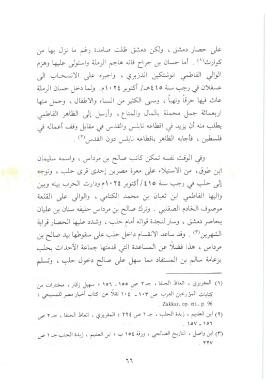 على حصار دمشق ، ولكن دمشق ظلت صامدة رغم ما نزل بها من
كوارث(١) . أما حسان بن جراح فانه هاجم الرملة واستولى عليها وهزم
الوالي الفاطمي انوشتكين الدزبري ، واجبره على الانسحاب الى
عسقلان في رجب سنة ٤١٥هـ/ أكتوبر ١٠٢٤م. ولما دخل حسان الرملة
عاث فيها حرقاً ونهباً ، وسبى الكثير من النساء والاطفال ، وحمل منها
اربعمائة جمل محملة بالمال والمتاع ، وأرسل إلى الظاهر الفاطمي
يطلب منه أن يزيد في اقطاعه نابلس والقدس في مقابل وقف أعماله في
فلسطين ، فأجابه الظاهر باقطاعه نابلس دون القدس(٢) .
وفي الوقت نفسه تمكن كاتب صالح بن مرداس ، واسمه سليمان
ابن طوق ، من الاستيلاء على معرة مصرين إحدى قرى حلب ، وتوجه
إلى حلب في رجب سنة ٤١٥ / أكتوبر ١٠٢٤م ودارت الحرب بينه وبين
واليها الفاطمي ابن ثعبان بن محمد الكتامي ، والوالي على القلعة
موصوف الخادم الصقلبي . وترك صالح بن مرداس حليفه سنان بن عليان
يحاصر دمشق ، وسار لنجدة قواته أمام حلب ، وشدد عليها الحصار قرابة
الشهرين(٣) . وقد ساعد الانقسام داخل حلب على سقوطها بيد صالح بن
مرداس ، هذا فضلاً عن المساعدة التي قدمتها جماعة الأحداث بحلب
بزعامة سالم بن المستفاد مما سهل على صالح دخول حلب ، وتسلم
(١) المقريزي ، اتعاظ الحنفا ، جـ ٢ ص ١٥٥ - ١٥٦ ؛ سهيل زكار ، مختارات من
كتابات المؤرخين العرب ص ١٠٣ - ١٠٤ نقلاً عن كتاب أخبار مصر للمسبحي ؛
Zakkar, op. cit., p. 96
(٢) ابن العديم ، زبدة الحلب ، جـ ١ ص ٢٢٤ ؛ المقريزي ، اتعاظ الحنفا ، جـ ٢ ص
١٥٦ - ١٥٧ .
(٣) ابن واصل ، تاريخ الصالحي ، ورقة ١٥٤ ب ؛ ابن العديم ، زبدة الحلب جـ ١ ص
٢٢٧ .
٦٦